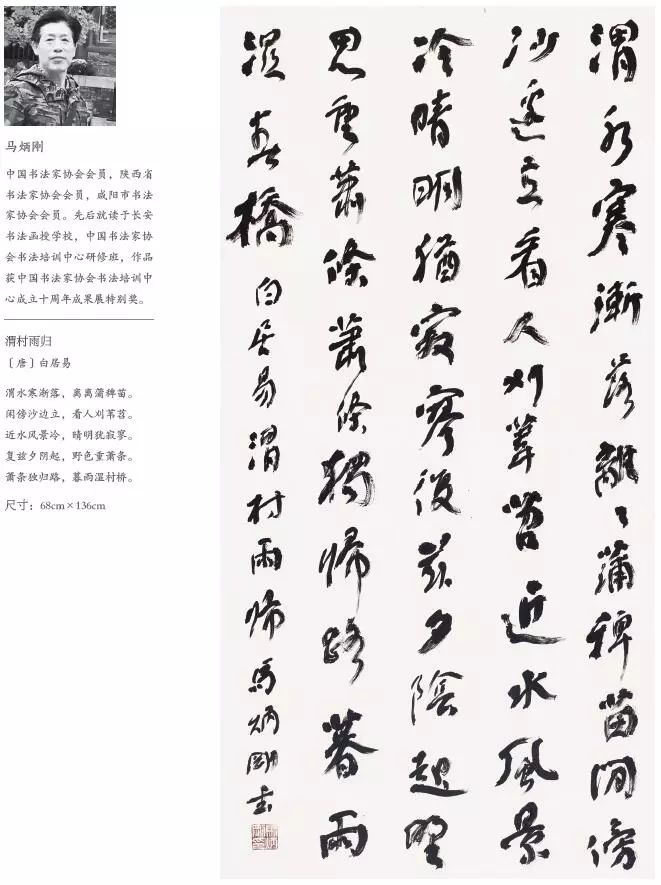 马炳刚
中国书法家协会会员，陕西省
书法家协会会员，咸阳市书法
家协会会员。先后就读于长安
书法函授学校，中国书法家协
会书法培训中心研修班，作品
获中国书法家协会书法培训中
心成立十周年成果展特别奖。
渭村雨归
〔唐〕白居易
渭水寒渐落，离离蒲稗苗。
闲傍沙边立，看人刈苇苕。
近水风景冷，晴明犹寂寥。
复兹夕阴起，野色重萧条。
萧条独归路，暮雨湿村桥。
尺寸：68cm×136cm
渭水寒漸落離〻蒲稗苗閒傍
沙邊立看人刈葦苕近水風景
冷晴明猶寂寥復茲夕陰起野
思重蕭條蕭條獨帰路暮雨
湿春橋 白居易渭村雨帰馬炳剛書